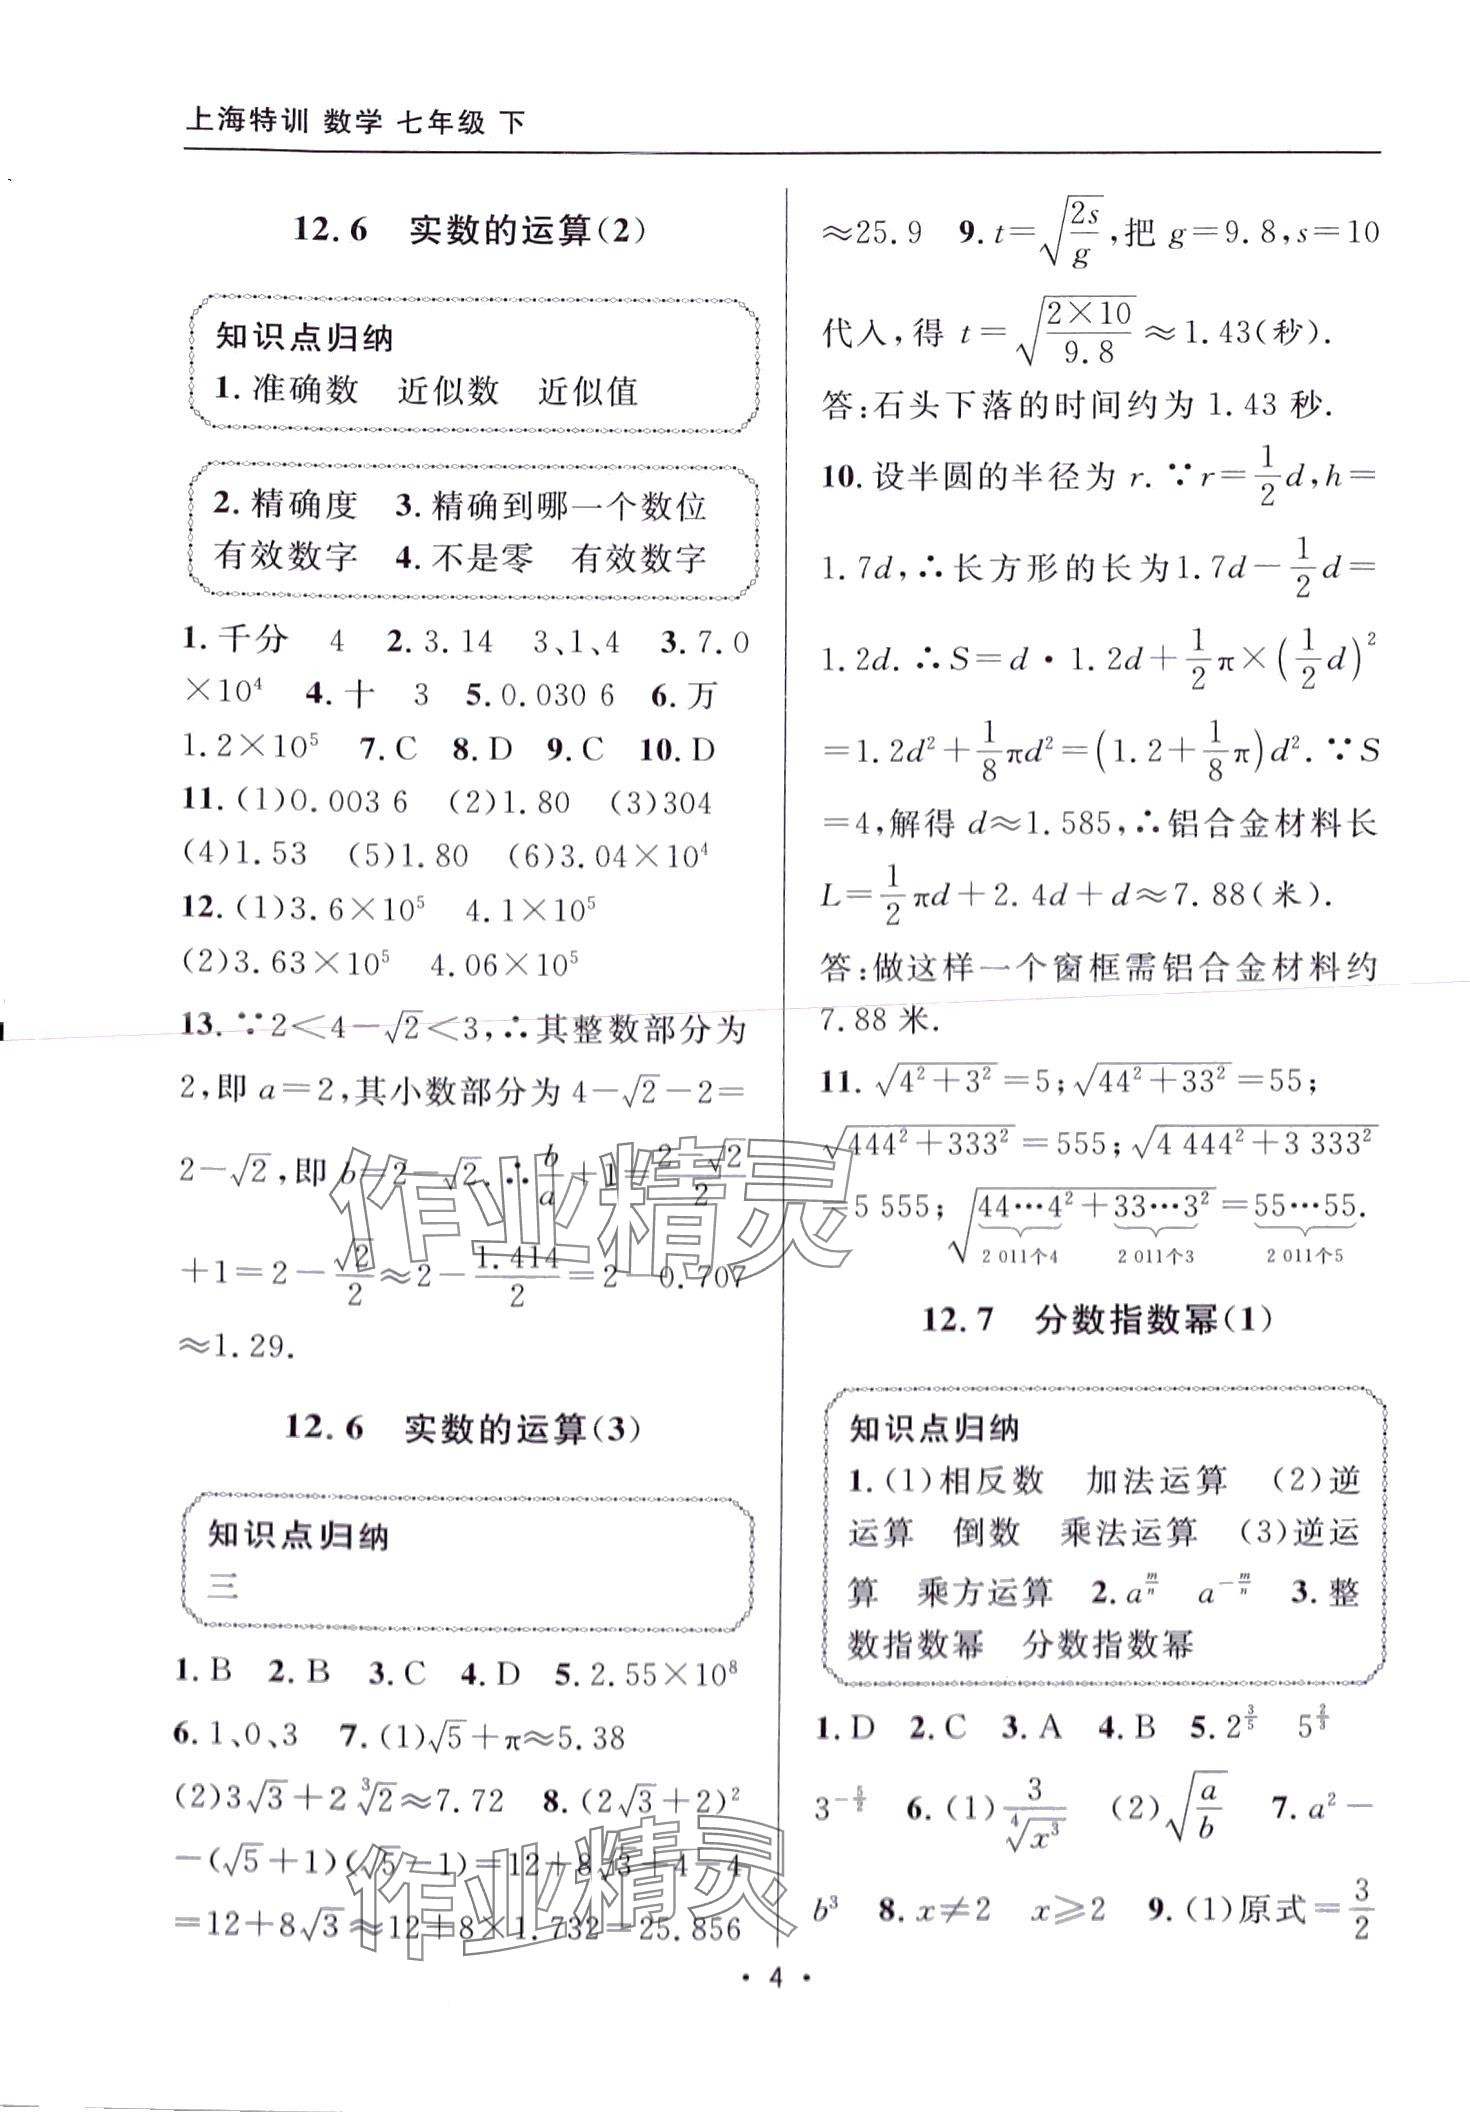 上海特训 数学 七年级 下
12.6 实数的运算(2)
知识点归纳
1.准确数 近似数 近似值
2.精确度 3.精确到哪一个数位
有效数字 4.不是零 有效数字
1.千分 4 2.3.14 3、1、4 3.7.0
×10⁴ 4.十 3 5.0.030 6 6.万
1.2×10⁵ 7.C 8.D 9.C 10.D
11.(1)0.003 6 (2)1.80 (3)304
(4)1.53 (5)1.80 (6)3.04×10⁴
12.(1)3.6×10⁵ 4.1×10⁵
(2)3.63×10⁵ 4.06×10⁵
13.∵2<4-√2<3,∴其整数部分为
2,即 a=2,其小数部分为 4-√2-2=
2-√2,即 b=2-√2.∴b/a+1=(2-√2)/2
+1=2-√2/2≈2-1.414/2=2 0.707
≈1.29.
12.6 实数的运算(3)
知识点归纳
三
1.B 2.B 3.C 4.D 5.2.55×10⁸
6.1、0、3 7.(1)√5+π≈5.38
(2)3√3+2∛2≈7.72 8.(2√3+2)²
-(√5+1)(√5-1)=12+8√3+4-4
=12+8√3≈12+8×1.732=25.856
≈25.9 9.t=√(2s/g),把 g=9.8,s=10
代入,得 t=√((2×10)/9.8)≈1.43(秒).
答:石头下落的时间约为 1.43 秒.
10.设半圆的半径为 r.∵r=1/2d,h=
1.7d,∴长方形的长为1.7d-1/2d=
1.2d.∴S=d·1.2d+1/2π×(1/2d)²
=1.2d²+1/8πd²=(1.2+1/8π)d².∵S
=4,解得 d≈1.585,∴铝合金材料长
L=1/2πd+2.4d+d≈7.88(米).
答:做这样一个窗框需铝合金材料约
7.88 米.
11.√(4²+3²)=5;√(44²+33²)=55;
√(444²+333²)=555;√(4 444²+3 333²)
=5 555;√(44…4²+33…3²)=55…55.
2 011个4 2 011个3 2 011个5
12.7 分数指数幂(1)
知识点归纳
1.(1)相反数 加法运算 (2)逆
运算 倒数 乘法运算 (3)逆运
算 乘方运算 2.a^(m/n) a^(-m/n) 3.整
数指数幂 分数指数幂
1.D 2.C 3.A 4.B 5.2^(3/5) 5^(2/3)
3^(-5/2) 6.(1)3/∜(x³) (2)√(a/b) 7.a²-
b³ 8.x≠2 x≥2 9.(1)原式=3/2
·4·
作业精灵
作业精灵